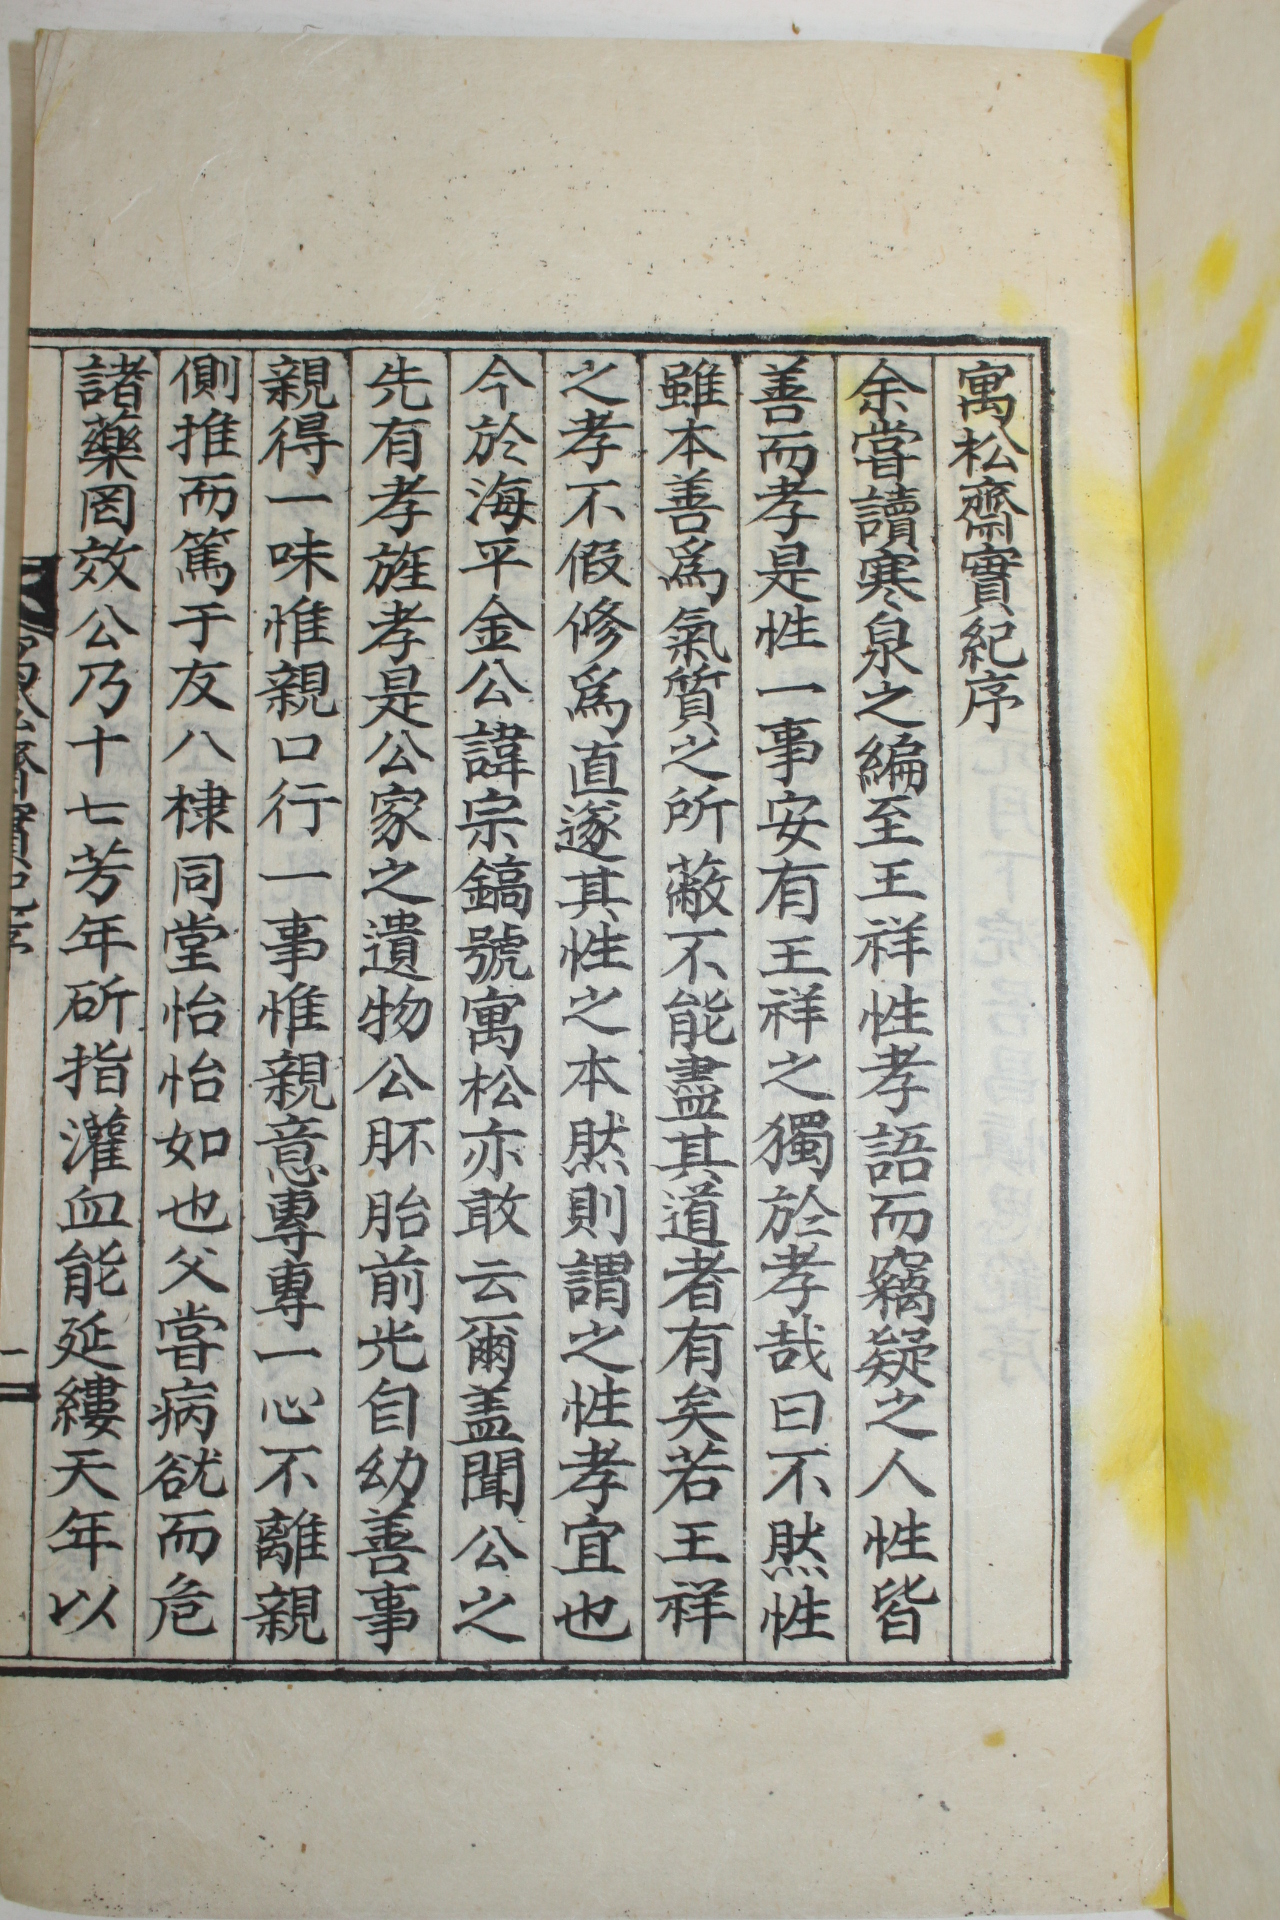 寓松齋實紀序
余嘗讀寒泉之編至王祥性孝語而竊疑之人性皆
善而孝是性一事安有王祥之獨於孝哉曰不然性
雖本善爲氣質之所蔽不能盡其道者有矣若王祥
之孝不假修爲直遂其性之本然則謂之性孝宜也
今於海平金公諱宗鎬號寓松亦敢云爾盖聞公之
先有孝旌孝是公家之遺物公胚胎前光自幼善事
親得一味惟親口行一事惟親意專專一心不離親
側推而篤于友八棣同堂怡怡如也父嘗病欿而危
諸藥罔效公乃十七芳年斫指灌血能延縷天年以
寓松齋實紀序
一